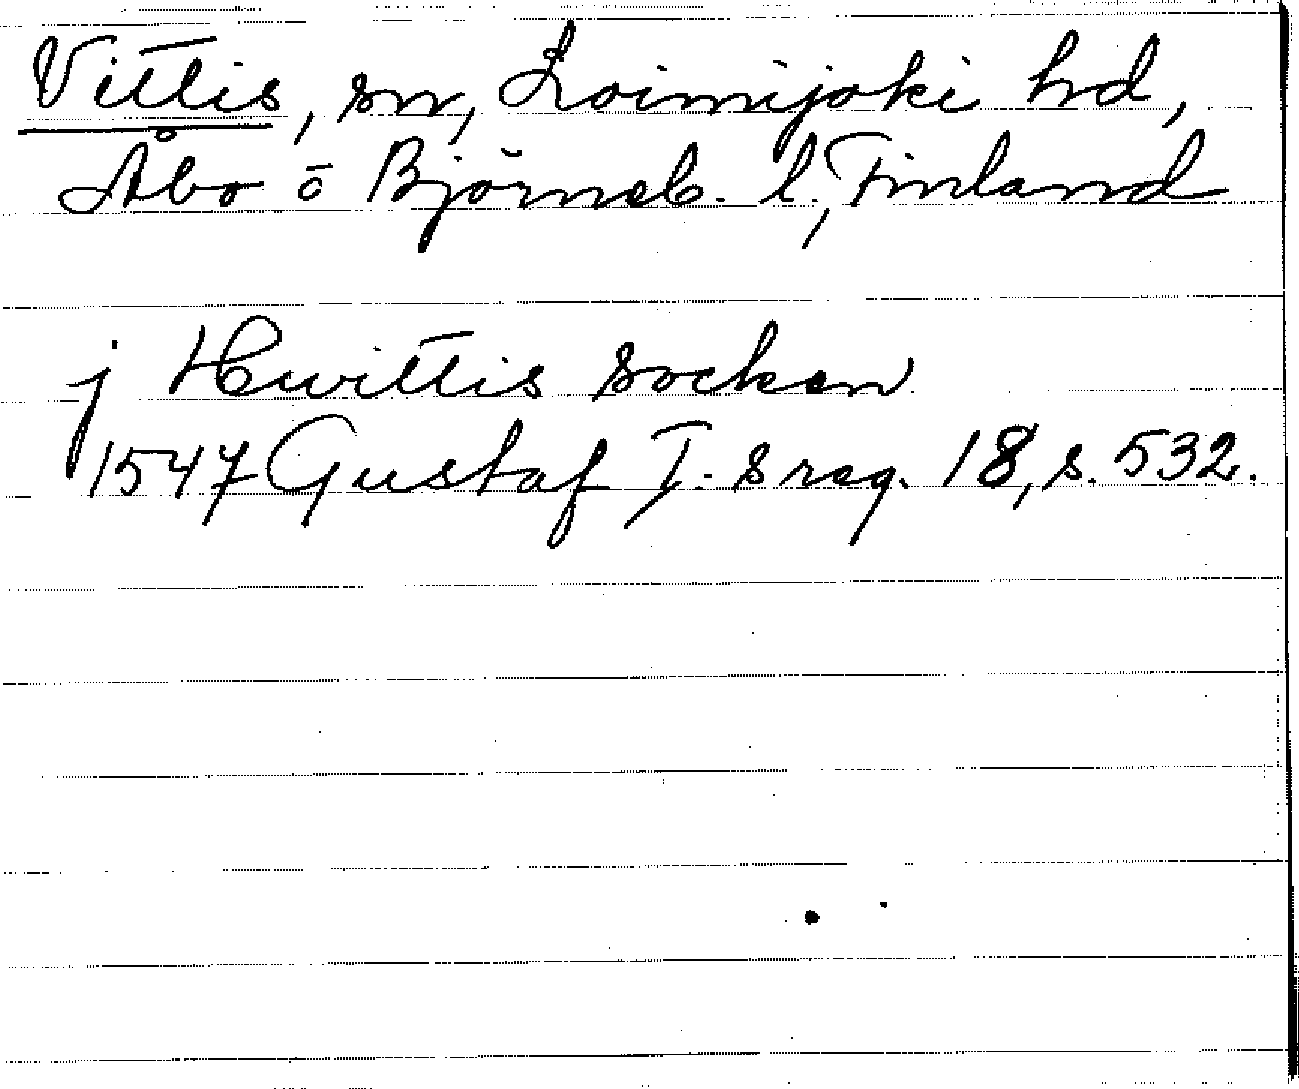 Vittis, sn, Loimijoki hd,
Åbo o Björneb. l., Finland
j Hwittis socken
1547 Gustaf I. s reg. 18, s. 532.